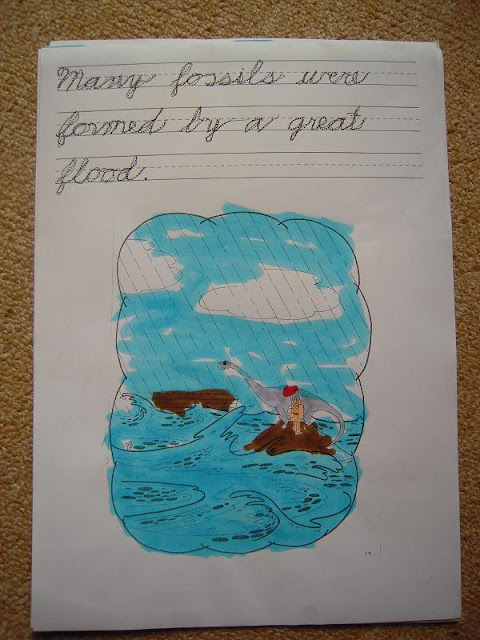 Many fossils were
formed by a great
flood.